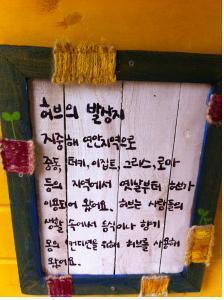 허브의 발상지
지중해 연안지역으로
중동, 터키, 이집트, 그리스, 로마
등의 지역에서 옛날부터 허브가
이용되어 왔어요. 허브는 사람들의
생활 속에서 음식이나 향기
몸의 컨디션을 위해 허브를 사용해
왔어요.